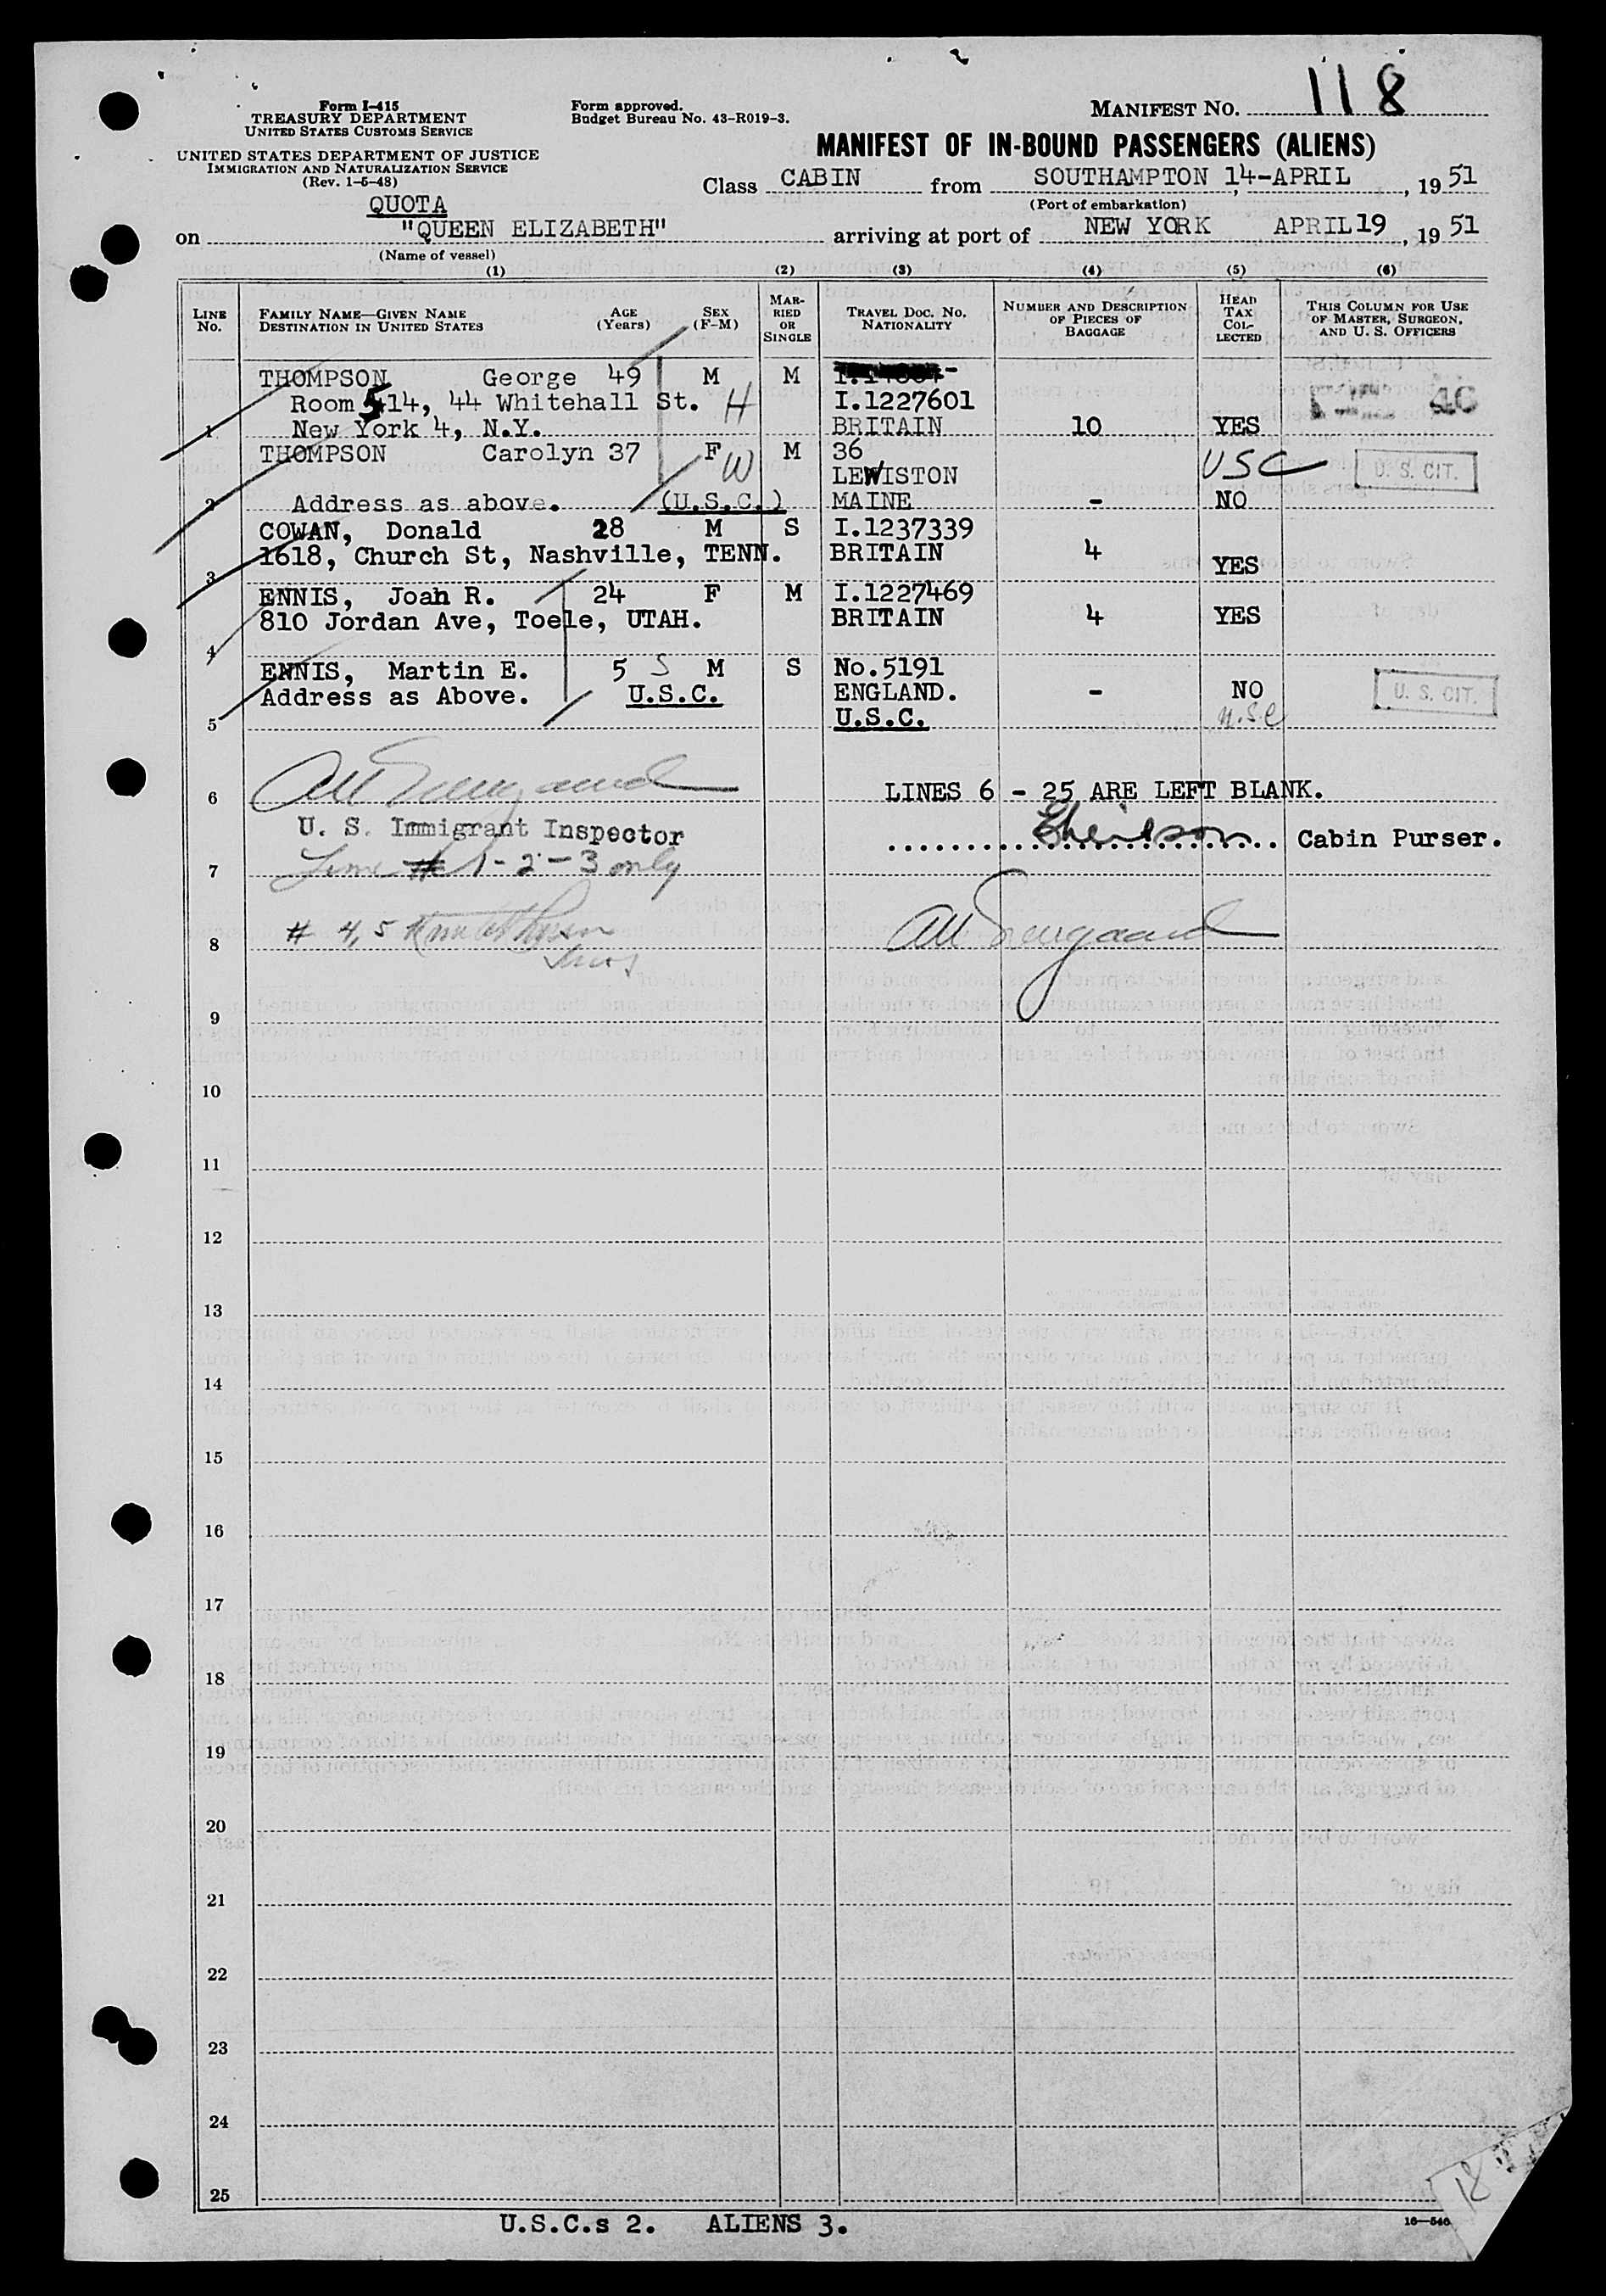 Form I-415
TREASURY DEPARTMENT
UNITED STATES CUSTOMS SERVICE
UNITED STATES DEPARTMENT OF JUSTICE
IMMIGRATION AND NATURALIZATION SERVICE
(Rev. 1-5-48)
Form approved.
Budget Bureau No. 43-R019-3.
MANIFEST NO. 118
MANIFEST OF IN-BOUND PASSENGERS (ALIENS)
Class CABIN from SOUTHAMPTON 14-APRIL, 1951
(Port of embarkation)
QUOTA
on "QUEEN ELIZABETH" arriving at port of NEW YORK APRIL 19, 1951
(Name of vessel)
(1) (2) (3) (4) (5) (6)
LINE No. FAMILY NAME—GIVEN NAME DESTINATION IN UNITED STATES AGE (Years) SEX (F-M) MARRIED OR SINGLE TRAVEL DOC. NO. NATIONALITY NUMBER AND DESCRIPTION OF PIECES OF BAGGAGE HEAD TAX COLLECTED THIS COLUMN FOR USE OF MASTER, SURGEON, AND U. S. OFFICERS
THOMPSON George 49 M M
Room 514, 44 Whitehall St. H I.1227601
1 New York 4, N.Y. BRITAIN 10 YES
THOMPSON Carolyn 37 F W M 36
LEWISTON USC U. S. CIT.
2 Address as above. (U.S.C.) MAINE - NO
COWAN, Donald 28 M S I.1237339
1618, Church St, Nashville, TENN. BRITAIN 4 YES
3
ENNIS, Joan R. 24 F M I.1227469
810 Jordan Ave, Toele, UTAH. BRITAIN 4 YES
4
ENNIS, Martin E. 5 S M S No.5191
Address as Above. U.S.C. ENGLAND. - NO U. S. CIT.
5 U.S.C. U.S.C
6 LINES 6 - 25 ARE LEFT BLANK.
U. S. Immigrant Inspector
Cabin Purser.
7 Line # 1-2-3 only
8 # 4,5
9
10
11
12
13
14
15
16
17
18
19
20
21
22
23
24
25
U.S.C.s 2. ALIENS 3.
18